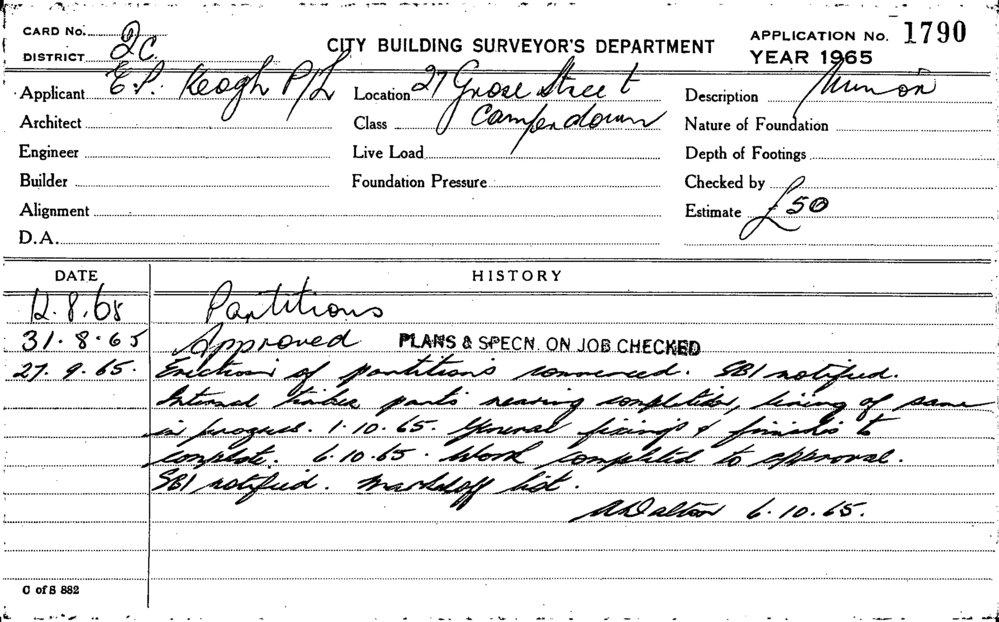 CARD No.
DISTRICT 2C.
CITY BUILDING SURVEYOR'S DEPARTMENT
APPLICATION No. 1790
YEAR 1965
Applicant E.P. Keogh P/L
Location 27 Grose Street
Camperdown
Description Minor
Architect
Class
Nature of Foundation
Engineer
Live Load
Depth of Footings
Builder
Foundation Pressure
Checked by
Alignment
Estimate £50
D.A.
DATE
HISTORY
12.8.65 Partitions
31.8.65 Approved PLANS & SPECN. ON JOB CHECKED
27.9.65. Erection of partitions commenced. SBI notified.
Internal timber parts nearing completion, lining of same
in progress. 1.10.65. General fixings & finishes to
complete. 6.10.65. Work completed to approval.
SBI notified. Markoff list.
ADalton 6.10.65.
C of S 882